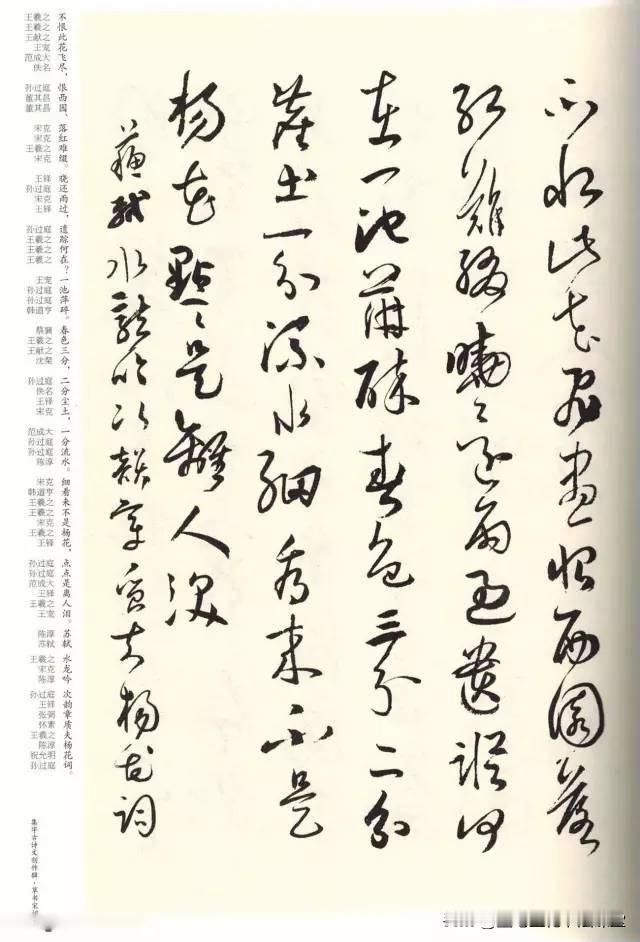 不恨此花飛盡恨西園落
紅難綴曉還雨過遺蹤何
在一池萍碎春色三分二分
塵土一分流水細看來不是
楊花點〻是離人淚
蘇軾水龍吟次韻章質夫楊花詞
不恨此花飞尽，恨西园，落红难缀。晓还雨过，遗踪何在？一池萍碎。春色三分，二分尘土，一分流水。细看来不是杨花，点点是离人泪。苏轼 水龙吟 次韵章质夫杨花词。
王羲之
王羲之
王献之
王宠
范成大
佚名
孙过庭
董其昌
董其昌
宋克
宋克
王羲之
宋克
王铎
孙过庭
宋克
王铎
孙过庭
王羲之
王羲之
王羲之
王宠
孙过庭
孙过庭
韩道亨
蔡襄
王羲之
王献之
沈粲
孙过庭
佚名
王铎
宋克
范成大
孙过庭
孙过庭
陈淳
宋克
韩道亨
王羲之
王羲之
宋克
王羲之
王铎
孙过庭
孙过庭
范成大
王铎
王羲之
王宠
陈淳
苏轼
王羲之
宋克
陈淳
孙过庭
王铎
张弼
怀素
王羲之
陈淳
祝允明
孙过庭
集字古诗文创作辑·草书宋词